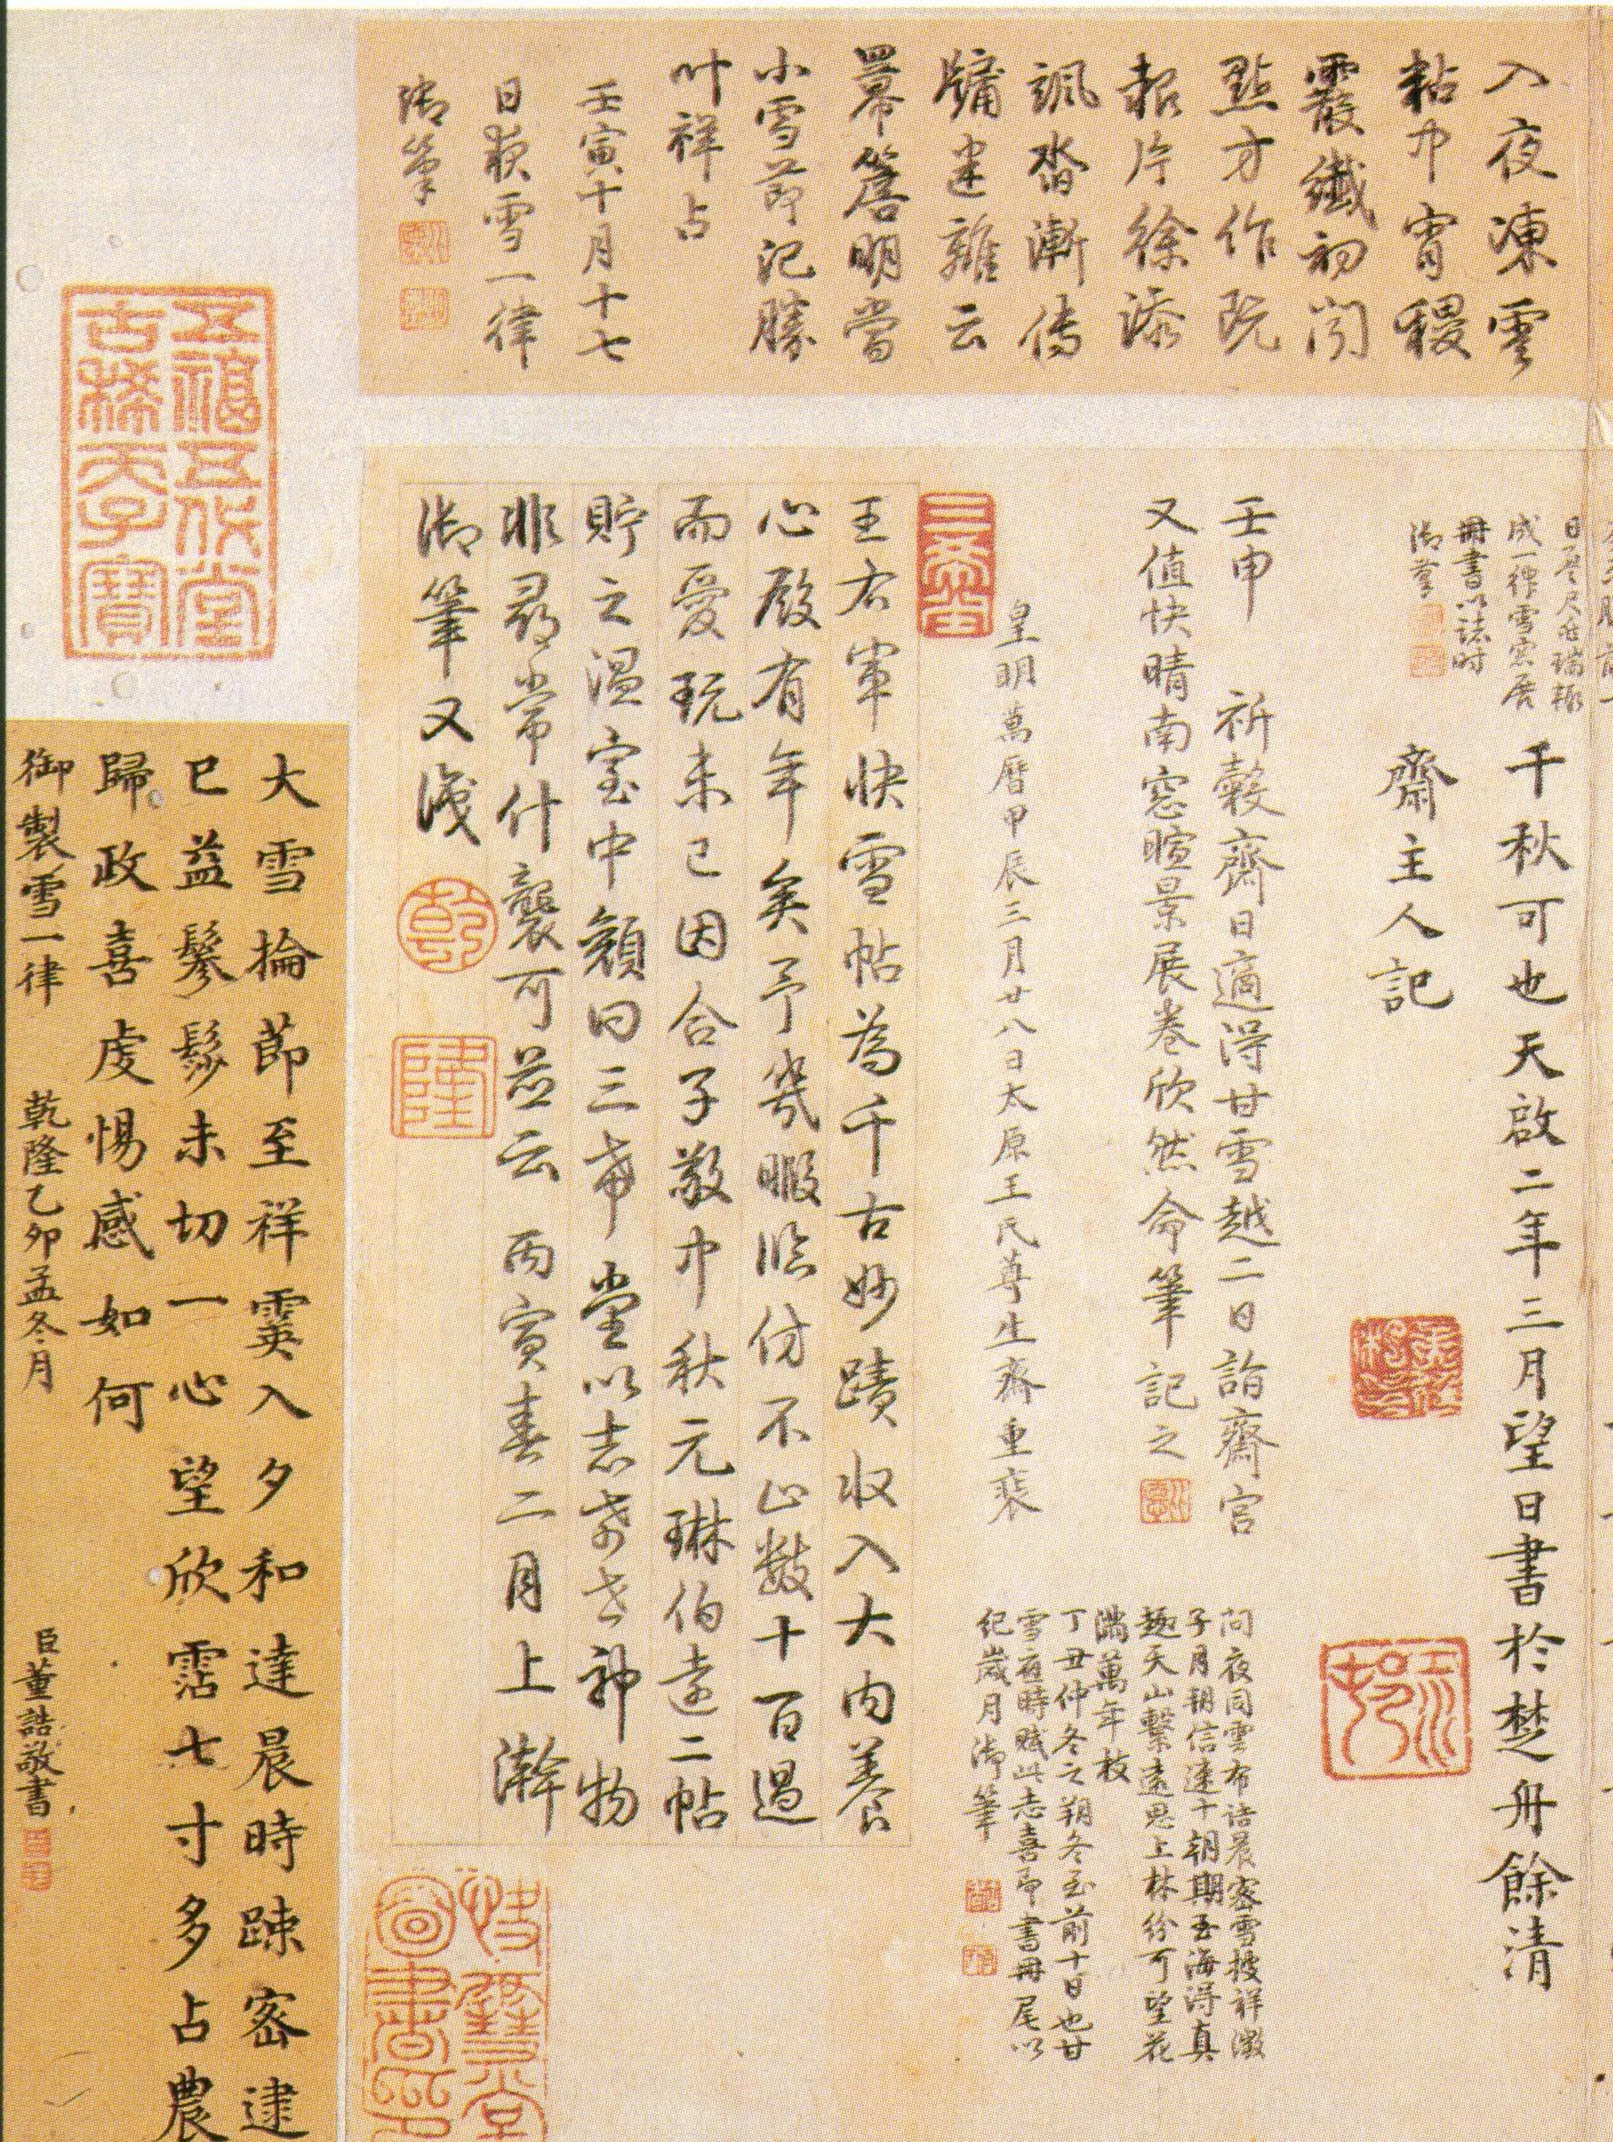 入夜凍雲
粘中宵稷
霰纖初聞
點才作既
報片徐添
颯沓漸傳
牖迷離云
冪簷明當
小雪節記勝
叶祥占
壬寅十月十七
日夜雪一律
御筆
成一律雪窓展
冊書以誌時
御筆
千秋可也天啟二年三月望日書於楚舟餘清
齋主人記
壬申 祈穀齋日適得甘雪越二日詣齋宮
又值快晴南窓暄景展卷欣然命筆記之
問夜同雲布詰晨密雪披祥徵
子月朔信逮十朝期玉海得真
趣天山繫遠思上林紛可望花
滿萬年枝
丁丑仲冬之朔冬至前十日也甘
雪應時賦此志喜即書冊尾以
紀歲月御筆
皇明萬曆甲辰三月廿八日太原王氏尊生齋重裝
三希堂
王右軍快雪帖為千古妙蹟收入大內養
心殿有年矣予幾暇臨仿不止數十百過
而愛玩未已因合子敬中秋元琳伯遠二帖
貯之溫室中顏曰三希堂以志希世神物
非尋常什襲可並云 丙寅春二月上澣
御筆又識
乾
隆
五福五代堂
古稀天子寶
大雪掄節至祥霙入夕和達晨時踈密逮
已益鬖髿未切一心望欣霑七寸多占農
歸政喜虔惕感如何
御製雪一律 乾隆乙卯孟冬月 臣董誥敬書